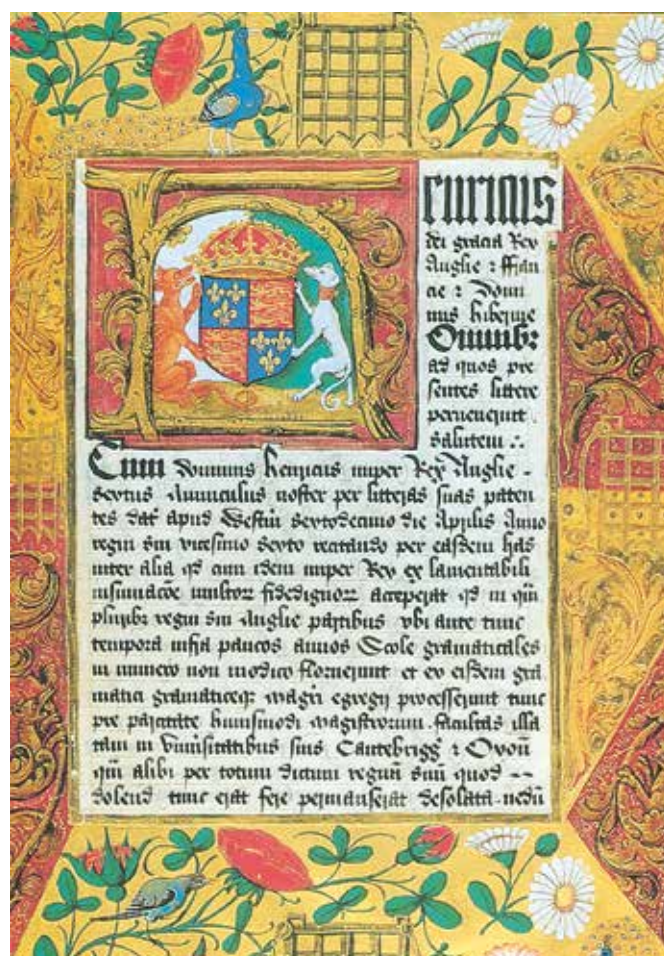 Henricus
dei gracia Rex
Anglie ⁊ ffran
cie ⁊ Domi
nus hibernie
Omnibꝫ
ad quos pre
sentes littere
pervenerint .
salutem ⸫
Cum dominus henricus nuper Rex Anglie -
sextus Avunculus noster per litteras suas paten
tes dat̄ apud Westm̄ sextodecimo die Aprilis Anno
regni sui vicesimo sexto recitando per easdem has
inter alia qd̄ cum idem nuper Rex ex lamentabili
insinuacōe multoꝝ fidedignoꝝ acceperat qd̄ in qm̄
pluribꝫ regni sui Anglie partibus vbi ante tunc
tempora infra paucos annos Scole gramaticales
in numero non modico floruerunt et ex eisdem gra
matici gramaticeqꝫ magr̄i egregij processerunt tunc
pre paritate huiusmodi magistrorum facultas illa
tam in Vniu̅sitatibus suis Cantebrigg̅ ⁊ Oxon̄
qm̄ alibi per totum dictum regnū suū quod --
dolend̄ tunc erat fere permanserat desolata nedū